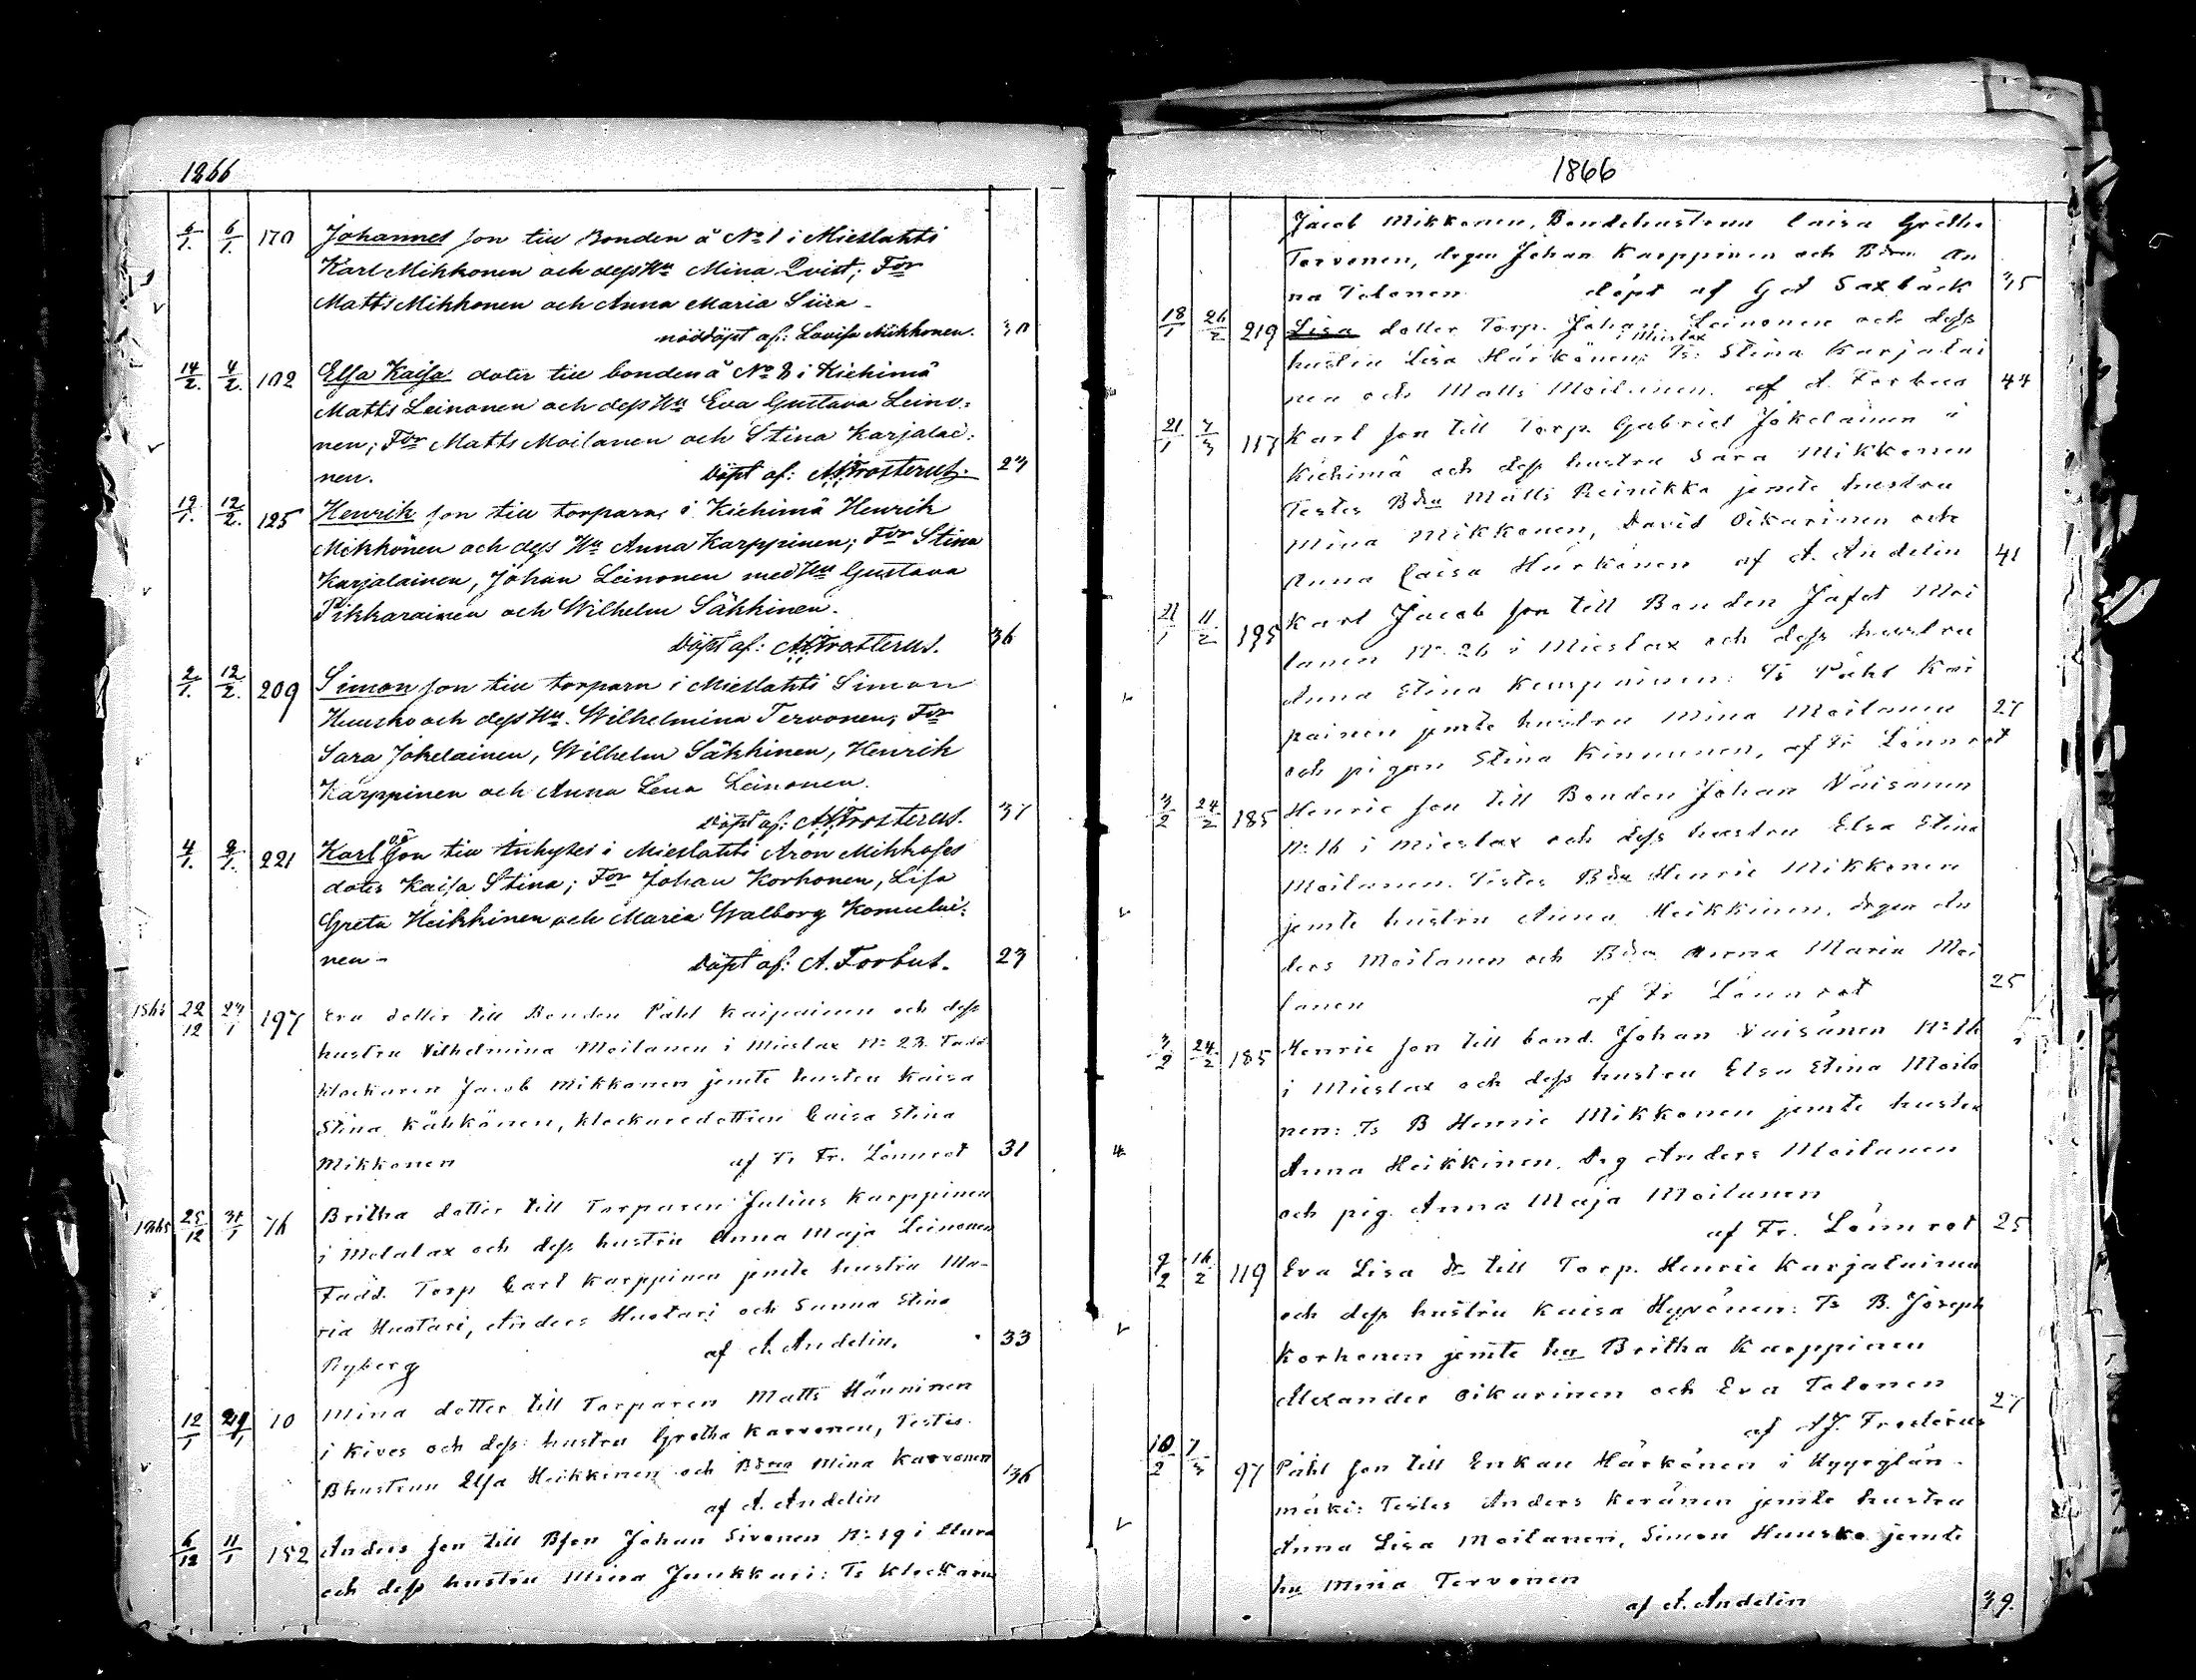 1866
5/1. 6/1. 170 Johannes son till Bonden å No 1 i Mieslahti
Karl Mikkonen och dess Hu Mina Qvist; For
Matts Mikkonen och Anna Maria Siira -
nöddöpt af: Lovisa Mikkonen. 30
14/2. 4/2. 102 Elsa Kaisa doter till bonden å No 8 i Kiehimä
Matts Leinonen och dess Hu Eva Gustava Leino:
nen; For Matts Moilanen och Stina Karjalai:
nen. Döpt af: Frosterus. 27
19/1. 12/2. 125 Henrik son till torparn i Kiehimä Henrik
Mikkonen och dess Hu Anna Karppinen; For Stina
Karjalainen, Johan Leinonen med Hu Gustava
Pikkarainen och Wilhelm Säkkinen.
Döpt af: Frosterus. 36
2/1. 12/2. 209 Simon son till torparn i Mieslahti Simon
Huusko och dess Hu. Wilhelmina Tervonen; For
Sara Jokelainen, Wilhelm Säkkinen, Henrik
Karppinen och Anna Lena Leinonen.
Döpt af: Frosterus. 37
4/1. 9/1. 221 Karl oä son till Inhyses i Mieslahti Aron Mikkoses
doter Kaisa Stina; For Johan Korhonen, Lisa
Greta Heikkinen och Maria Walborg Komulai:
nen - Döpt af: A. Forbus. 23
1865 22/12 27/1 197 Eva dotter till Bonden Påhl Kaipainen och dess
hustru Vilhelmina Moilanen i Mieslax No 23. Fadd
klockaren Jacob Mikkonen jemte hustru Kaisa
Stina Kähkönen, klockaredottren Caisa Stina
Mikkonen af Fr. Lönnrot 31
1865 25/12 31/1 76 Britha dotter till Torparen Julius Karppinen
i Melalax och dess hustru Anna Maja Leinonen
Fadd. Torp Carl Karppinen jemte hustru Ma-
ria Huotari, Anders Huotari och Sanna Stina
Ryberg af A. Andelin. 33
12/1 29/1 10 Mina dotter till Torparen Matts Hänninen
i Kives och dess hustru Gretha Karvonen, Testes
Bhustrun Elsa Heikkinen och Bdra Mina Karvonen
af A. Andelin 36
6/12 11/1 152 Anders son till Bson Johan Sivonen No 19 i Uura
och dess hustru Mina Juukkuri: Ts klockarn
1866
Jacob Mikkonen, Bondehustrun Caisa Gretha
Tervonen, dräg Johan Karppinen och Bdra An
na Tolonen döpt af Gd Saxbäck 35
18/1 26/2 219 Lisa dotter Torp. Johan Leinonen och dess
i Mieslax
hustru Lisa Härkönen: Ts: Stina Karjalai
nen och Matts Moilanen. af A. Forbus 44
21/1 7/3 117 Karl son till Torp. Gabriel Jokelainen i
Kiehimä och dess hustru Sara Mikkonen
Testes Bdn Matts Reinikka jemte hustru
Mina Mikkonen, David Oikarinen och
Anna Caisa Härkönen af A. Andelin 41
21/1 11/2 195 Karl Jacob son till Bonden Jafet Moi
lanen No 26 i Mieslax och dess hustru
Anna Stina Kemppainen: Ts Påhl Kai
painen jemte hustru Mina Moilanen 27
och pigan Stina Kinnunen, af Fr Lönnrot
3/2 24/2 185 Henric son till Bonden Johan Väisänen
No 16 i Mieslax och dess hustru Elsa Stina
Moilanen. Testes Bdn Henric Mikkonen
jemte hustru Anna Heikkinen, drgen An
ders Moilanen och Bdra Anna Maria Moi
lanen af Fr Lönnrot 25
3/2 24/2 185 Henric son till bond. Johan Väisänen No 16
i Mieslax och dess hustru Elsa Stina Moila
nen: Ts B Henric Mikkonen jemte hustru
Anna Heikkinen, drg Anders Moilanen
och pig. Anna Maja Moilanen
af Fr. Lönnrot 25
9/2 16/2 119 Eva Lisa dr till Torp. Henric Karjalainen
och dess hustru Kaisa Hyvönen: Ts B. Joseph
Korhonen jemte hu Britha Karppinen
Alexander Oikarinen och Eva Tolonen 27
af AJ. Frosterus
10/2 7/3 97 Påhl son till Enkan Härkönen i
mäki: Testes Anders Keränen jemte hustru
Anna Lisa Moilanen, Simon Huusko jemte
hu Mina Tervonen
af A. Andelin 39.